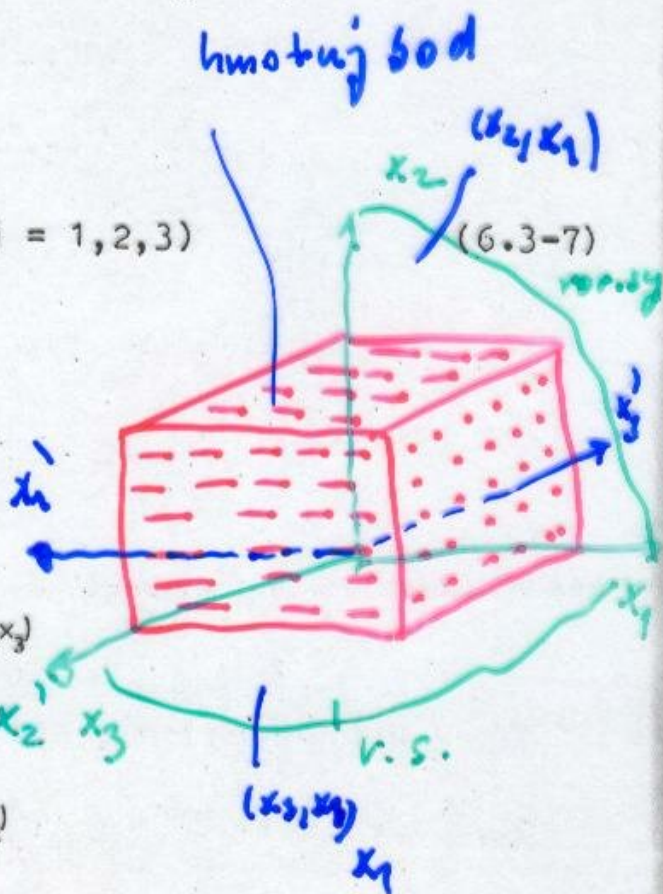 hmotný bod
(x₂, x₁)
x₂
= 1,2,3)
(6.3-7)
x₃'
x₁'
x₁
x₃)
x₂' x₃
r. s.
x₁